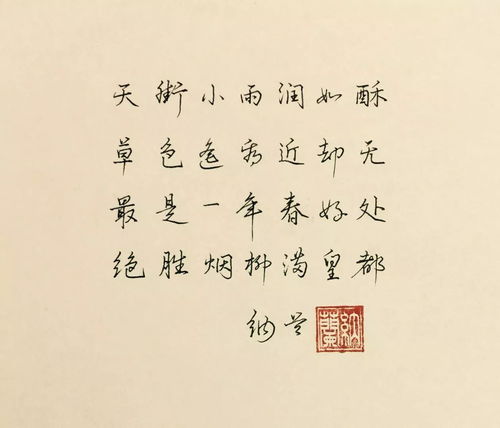 天街小雨润如酥
草色遥看近却无
最是一年春好处
绝胜烟柳满皇都
纳兰
纳兰